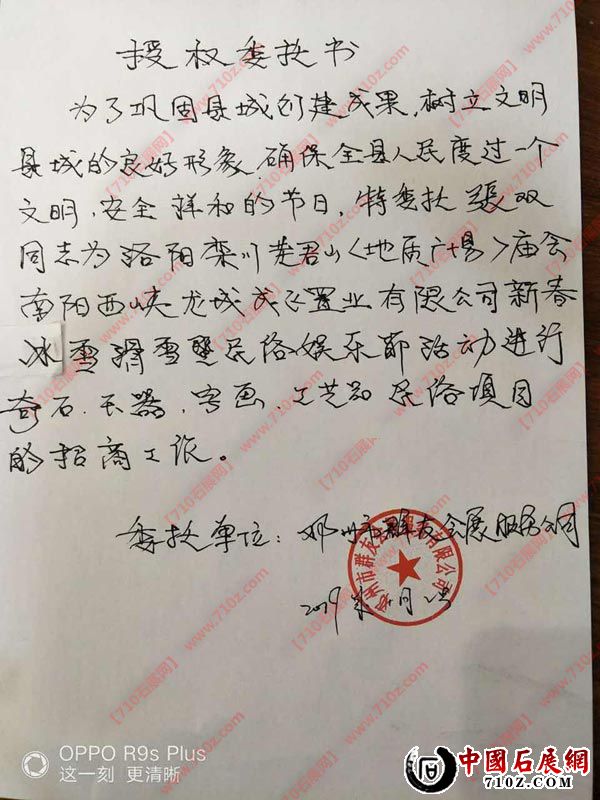 授权委托书
为了巩固县城创建成果,树立文明
县城的良好形象,确保全县人民度过一个
文明,安全祥和的节日,特委托張双
同志为洛阳栾川老君山<地质广场>庙会
南阳西峡龙城 置业有限公司新春
冰雪滑雪暨民俗娱乐節活动进行
奇石.玉器,字画.工艺品民俗项目
的招商工作。
委托单位:邓州市群友会展服务公司
州市群友 有限公司
2019年 月
OPPO R9s Plus
这一刻 更清晰
中國石展網
710z.com
【710石展网】
www.710z.com